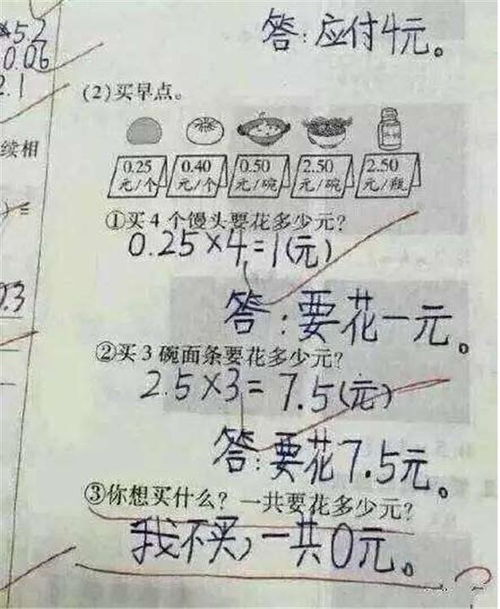 ×5.2
0.06
2.1
答:应付4元。
(2)买早点。
0.25 0.40 0.50 2.50 2.50
元/个 元/个 元/碗 元/碗 元/瓶
续相
①买4个馒头要花多少元?
0.25×4=1(元)
0.3
答:要花一元。
②买3碗面条要花多少元?
2.5×3=7.5(元)
答:要花7.5元。
③你想买什么?一共要花多少元?
我不买,一共0元。
?